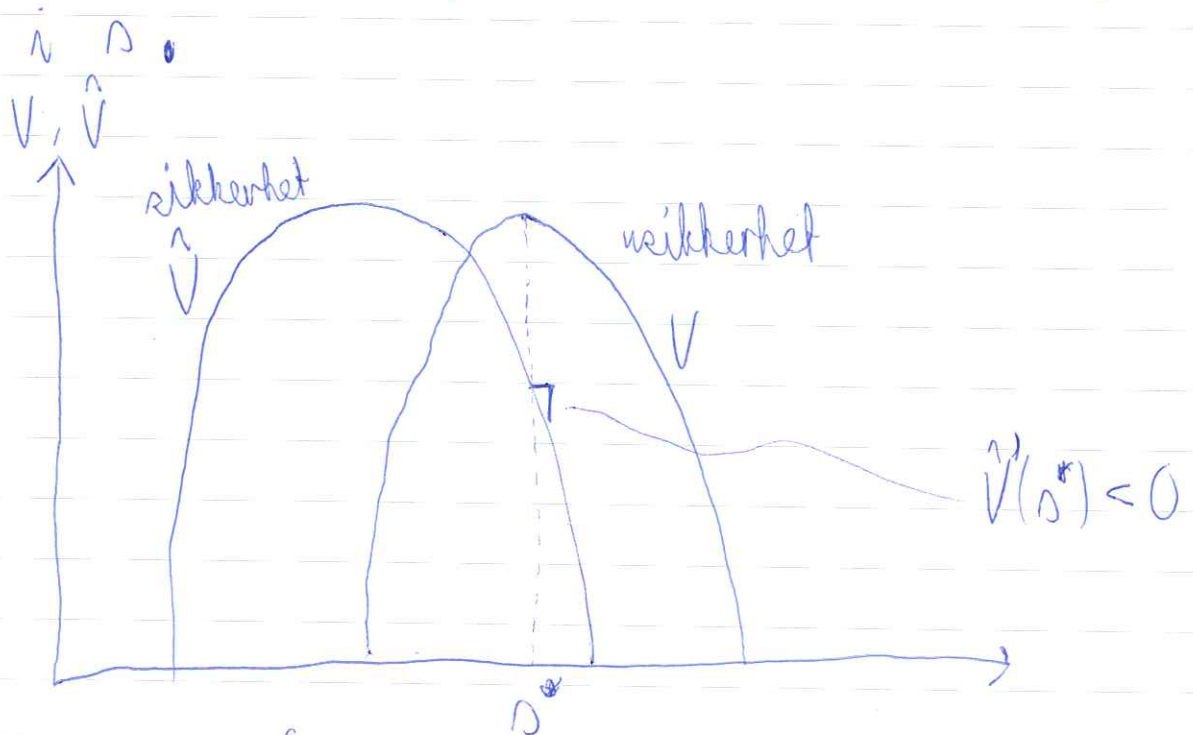 i s.
V, V̂
sikkerhet
V̂
usikkerhet
V
V̂'(s*) < 0
s*